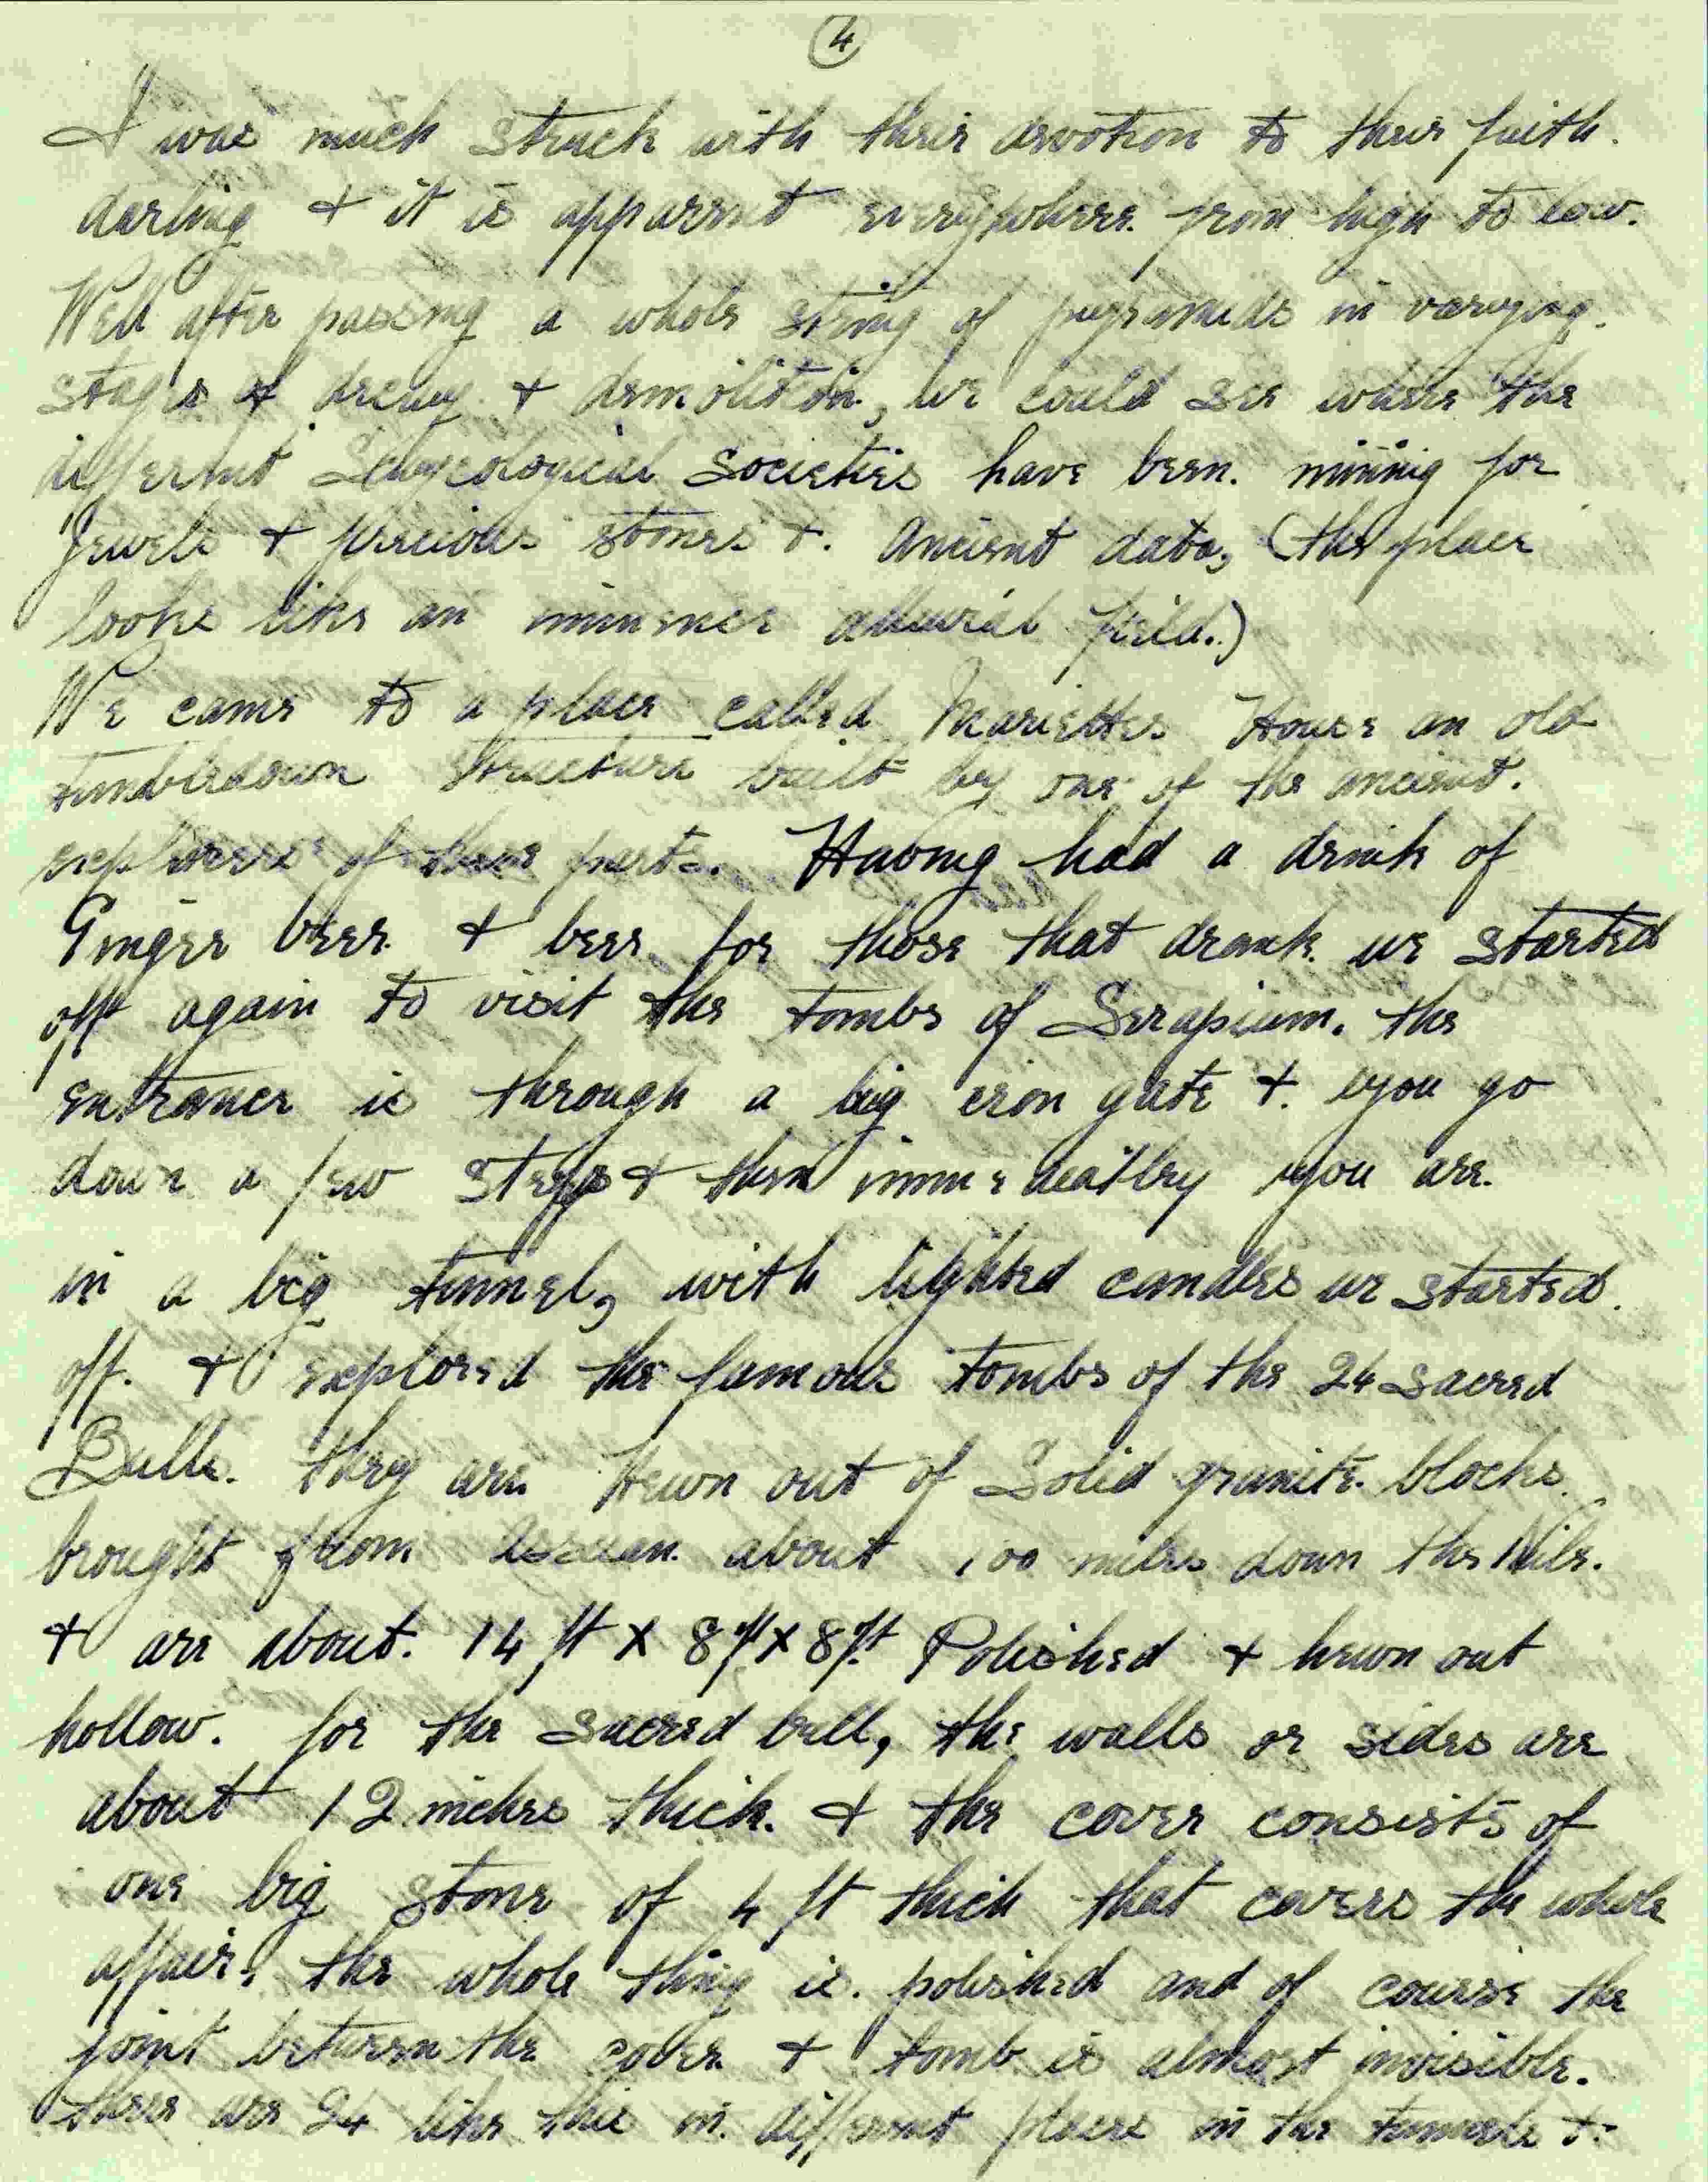 4
I was much struck with their devotion to their faith.
darling & it is apparent everywhere from high to low.
Well after passing a whole string of pyramids in varying
stages of decay & demolition, we could see where the
different Societies have been mining for
Jewels & precious stones & Ancient data, (the place
looks like an immence alluvial field.)
We came to a place called Mariettes House an old
tumbledown structure built by one of the ancient
explorers of these parts. Having had a drink of
Ginger beer & beer for those that drank we started
off again to visit the tombs of Serapium. the
entrance is through a big iron gate & you go
down a few steps & then immediatley you are
in a big tunnel, with lighted candles we started
off & explored the famous tombs of the 24 sacred
Bulls. they are Hewn out of Solid granite blocks
brought from Assuan about 100 miles down the Nile.
& are about 14 ft X 8 ft X 8 ft Polished & hewn out
hollow. for the sacred bull, the walls or sides are
about 12 inches thick & the cover consists of
one big stone of 4 ft thick that covers the whole
affair. the whole thing is polished and of course the
joint between the cover & tomb is almost invisible.
there are 24 like this in different places in the tunnels &